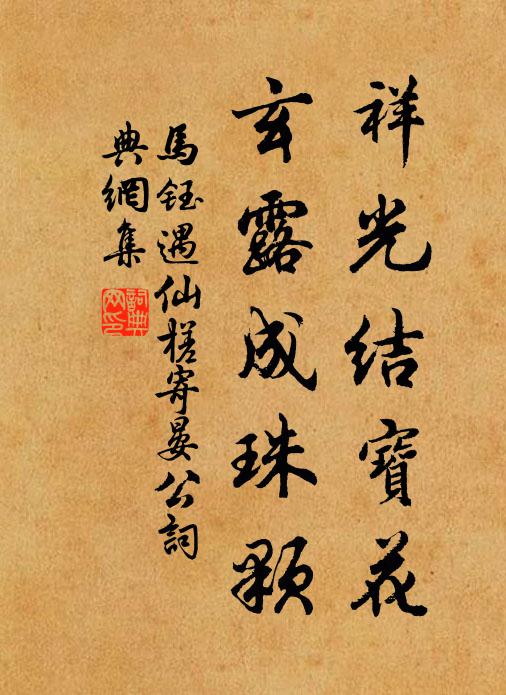 祥光結寶花
玄露成珠顆
馬鈺遇仙槎寄晏公詞
典網集
詞典網印